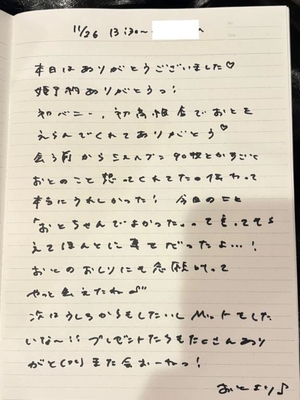 11/26 13:30〜
本日はありがとうございました♡
姫予約ありがとうっ!
初バニー、初高松舎でおとを
えらんでくれてありがとう♡
会う前から 90 想とかすごく
おとのこと想ってくれてたの伝わって
本当にうれしかった! 今日のこと
「おとちゃんでよかった。」って言ってもら
えてほんとに幸せだったよ...!
おとのおしりにも念願叶って
やっと会えたね♪
次はうしろからもしたいし Mットでした
いな〜!! プレゼントたちもたくさんあり
がとう また会おーねっ!
おとより♪